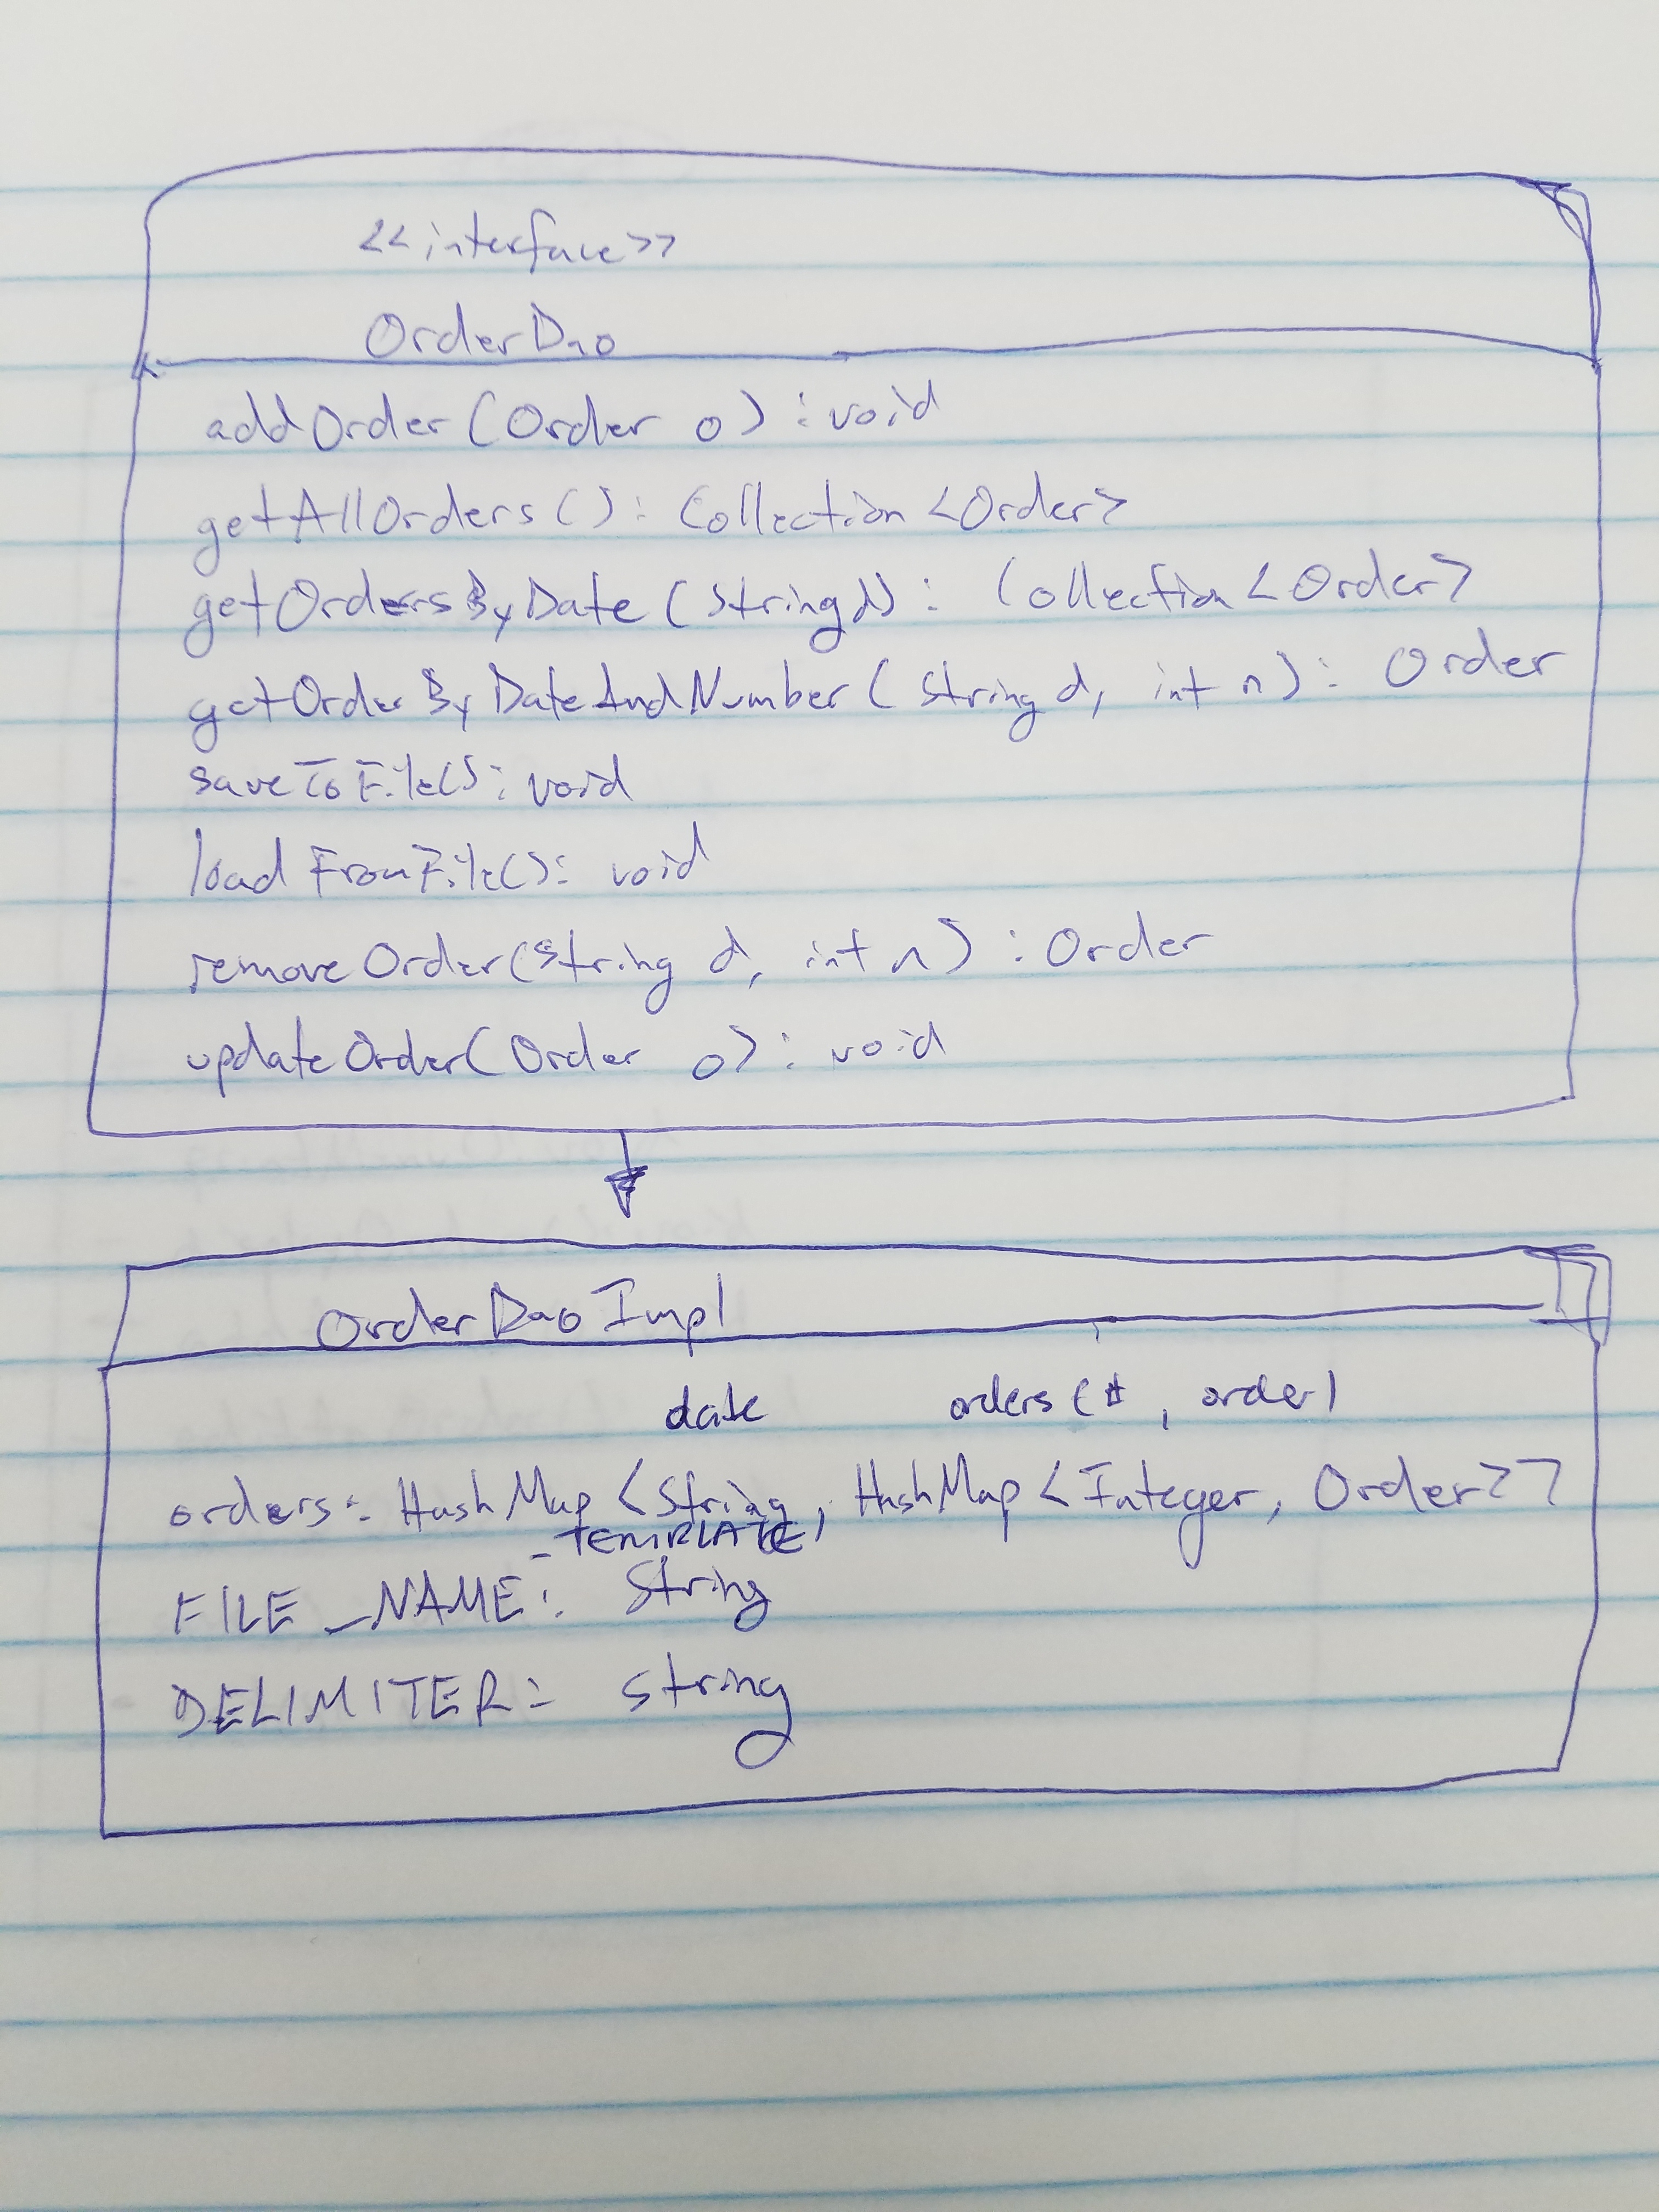 <<interface>>
OrderDao
addOrder(Order o): void
getAllOrders(): Collection<Order>
getOrdersByDate(String d): Collection<Order>
getOrderByDateAndNumber(String d, int n): Order
saveToFile(): void
loadFromFile(): void
removeOrder(String d, int n): Order
updateOrder(Order o): void
OrderDaoImpl
date orders (#, order)
orders: HashMap<String, HashMap<Integer, Order>>
_TEMPLATE
FILE_NAME: String
DELIMITER: String